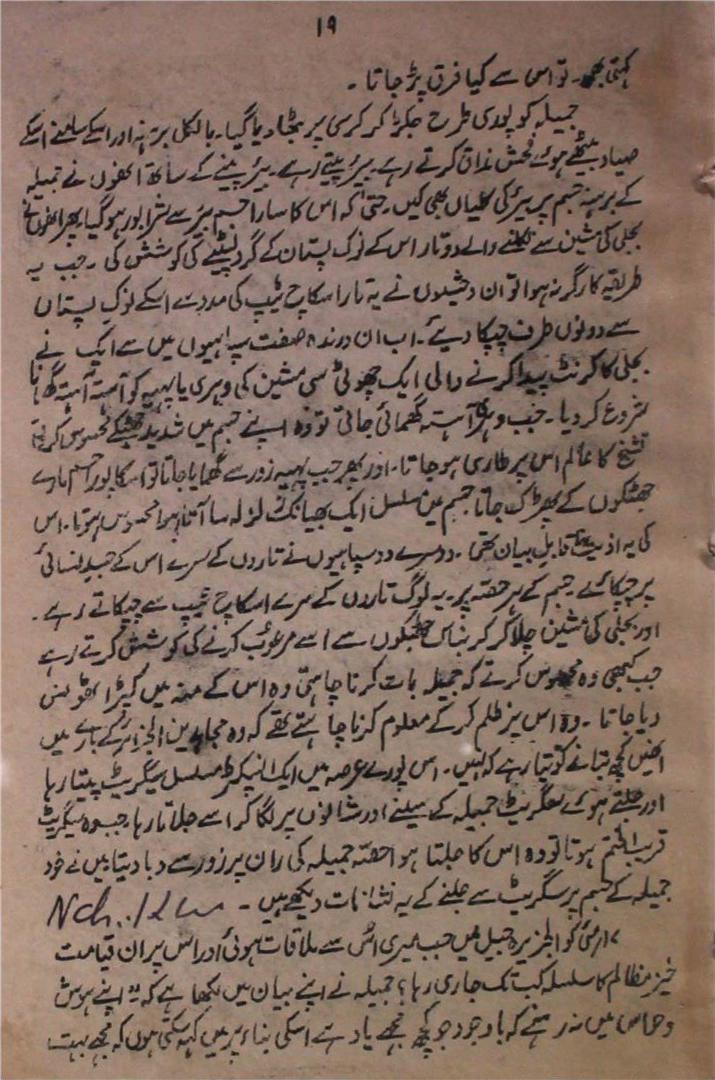 ۱۹
کہتی بھی۔ تو اس سے کیا فرق پڑ جاتا۔
جمیلہ کو پوری طرح جکڑ کر کرسی پر بٹھا دیا گیا۔ بالکل برہنہ اور اسکے سامنے اسکے
صیاد بیٹھے ہوئے فحش مذاق کرتے رہے بیئر پیتے رہے۔ بیئر پینے کے ساتھ انھوں نے جمیلہ
کے برہنہ جسم پر بیئر کی کلیاں بھی کیں۔ حتیٰ کہ اس کا سارا جسم بیئر سے شرابور ہو گیا۔ پھر انھوں نے
بجلی کی مشین سے نکلنے والے دو تار اس کے نوک پستان کے گرد لپٹنے کی کوشش کی۔ جب یہ
طریقہ کارگر نہ ہوا تو ان وحشیوں نے یہ تار اسکاچ ٹیپ کی مدد سے اسکے نوک پستاں
سے دونوں طرف چپکا دیئے۔ اب ان درندہ صفت سپاہیوں میں سے ایک نے
بجلی کا کرنٹ پیدا کرنے والی ایک چھوٹی سی مشین کی وہری یا پہیہ کو آہستہ آہستہ گھمانا
شروع کر دیا۔ جب وہری آہستہ گھمائی جاتی تو وہ اپنے جسم میں شدید جھٹکے محسوس کرتی
تشنج کا عالم اس پر طاری ہو جاتا۔ اور پھر جب پہیہ زور سے گھمایا جاتا تو اسکا پورا جسم مارے
جھٹکوں کے پھڑک جاتا جسم میں مسلسل ایک بھیانک لزلہ سا آتا ہوا محسوس ہوتا۔ اس
کی یہ اذیت ناقابل بیان تھی۔ دوسرے دو سپاہیوں نے تاروں کے سرے اس کے جسد نسائی
پر چپکائے جسم کے ہر حصّہ پر۔ یہ لوگ تاروں کے سرے اسکاچ ٹیپ سے چپکاتے رہے۔
اور بجلی کی مشین چلا کر کربناک جھٹکوں سے اسے مرعوب کرنے کی کوشش کرتے رہے
جب کبھی وہ محسوس کرتے کہ جمیلہ بات کرنا چاہتی وہ اس کے منہ میں کپڑا ٹھونس
دیا جاتا۔ وہ اس پر ظلم کر کے معلوم کرنا چاہتے تھے کہ وہ مجاہدین الجزائر کے بارے میں
انھیں کچھ بتانے کو تیار ہے کہ نہیں۔ اس پورے عرصہ میں ایک انسپکٹر مسلسل سیگریٹ پیتا رہا
اور جلتے ہوئے سگریٹ جمیلہ کے سینے اور شانوں پر لگا کر اسے جلاتا رہا۔ جب وہ سیگریٹ
قریب الختم ہوتا تو وہ اس کا جلتا ہوا حصّہ جمیلہ کی ران پر زور سے دبا دیتا میں نے خود
جمیلہ کے جسم پر سگریٹ سے جلنے کے یہ نشانات دیکھے ہیں۔
۱۷ مئی کو الجزیرہ جیل میں جب میری اس سے ملاقات ہوئی اور اس پر ان قیامت
خیز مظالم کا سلسلہ کب تک جاری رہا؟ جمیلہ نے اپنے بیان میں لکھا ہے کہ "اپنے ہوش
و حواس میں نہ رہنے کہ باوجود جو کچھ مجھے یاد ہے اسکی بناء پر میں کہہ سکتی ہوں کہ مجھے بہت